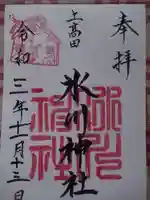 奉拝
上高田
氷川神社
令和
三年十一月十三日